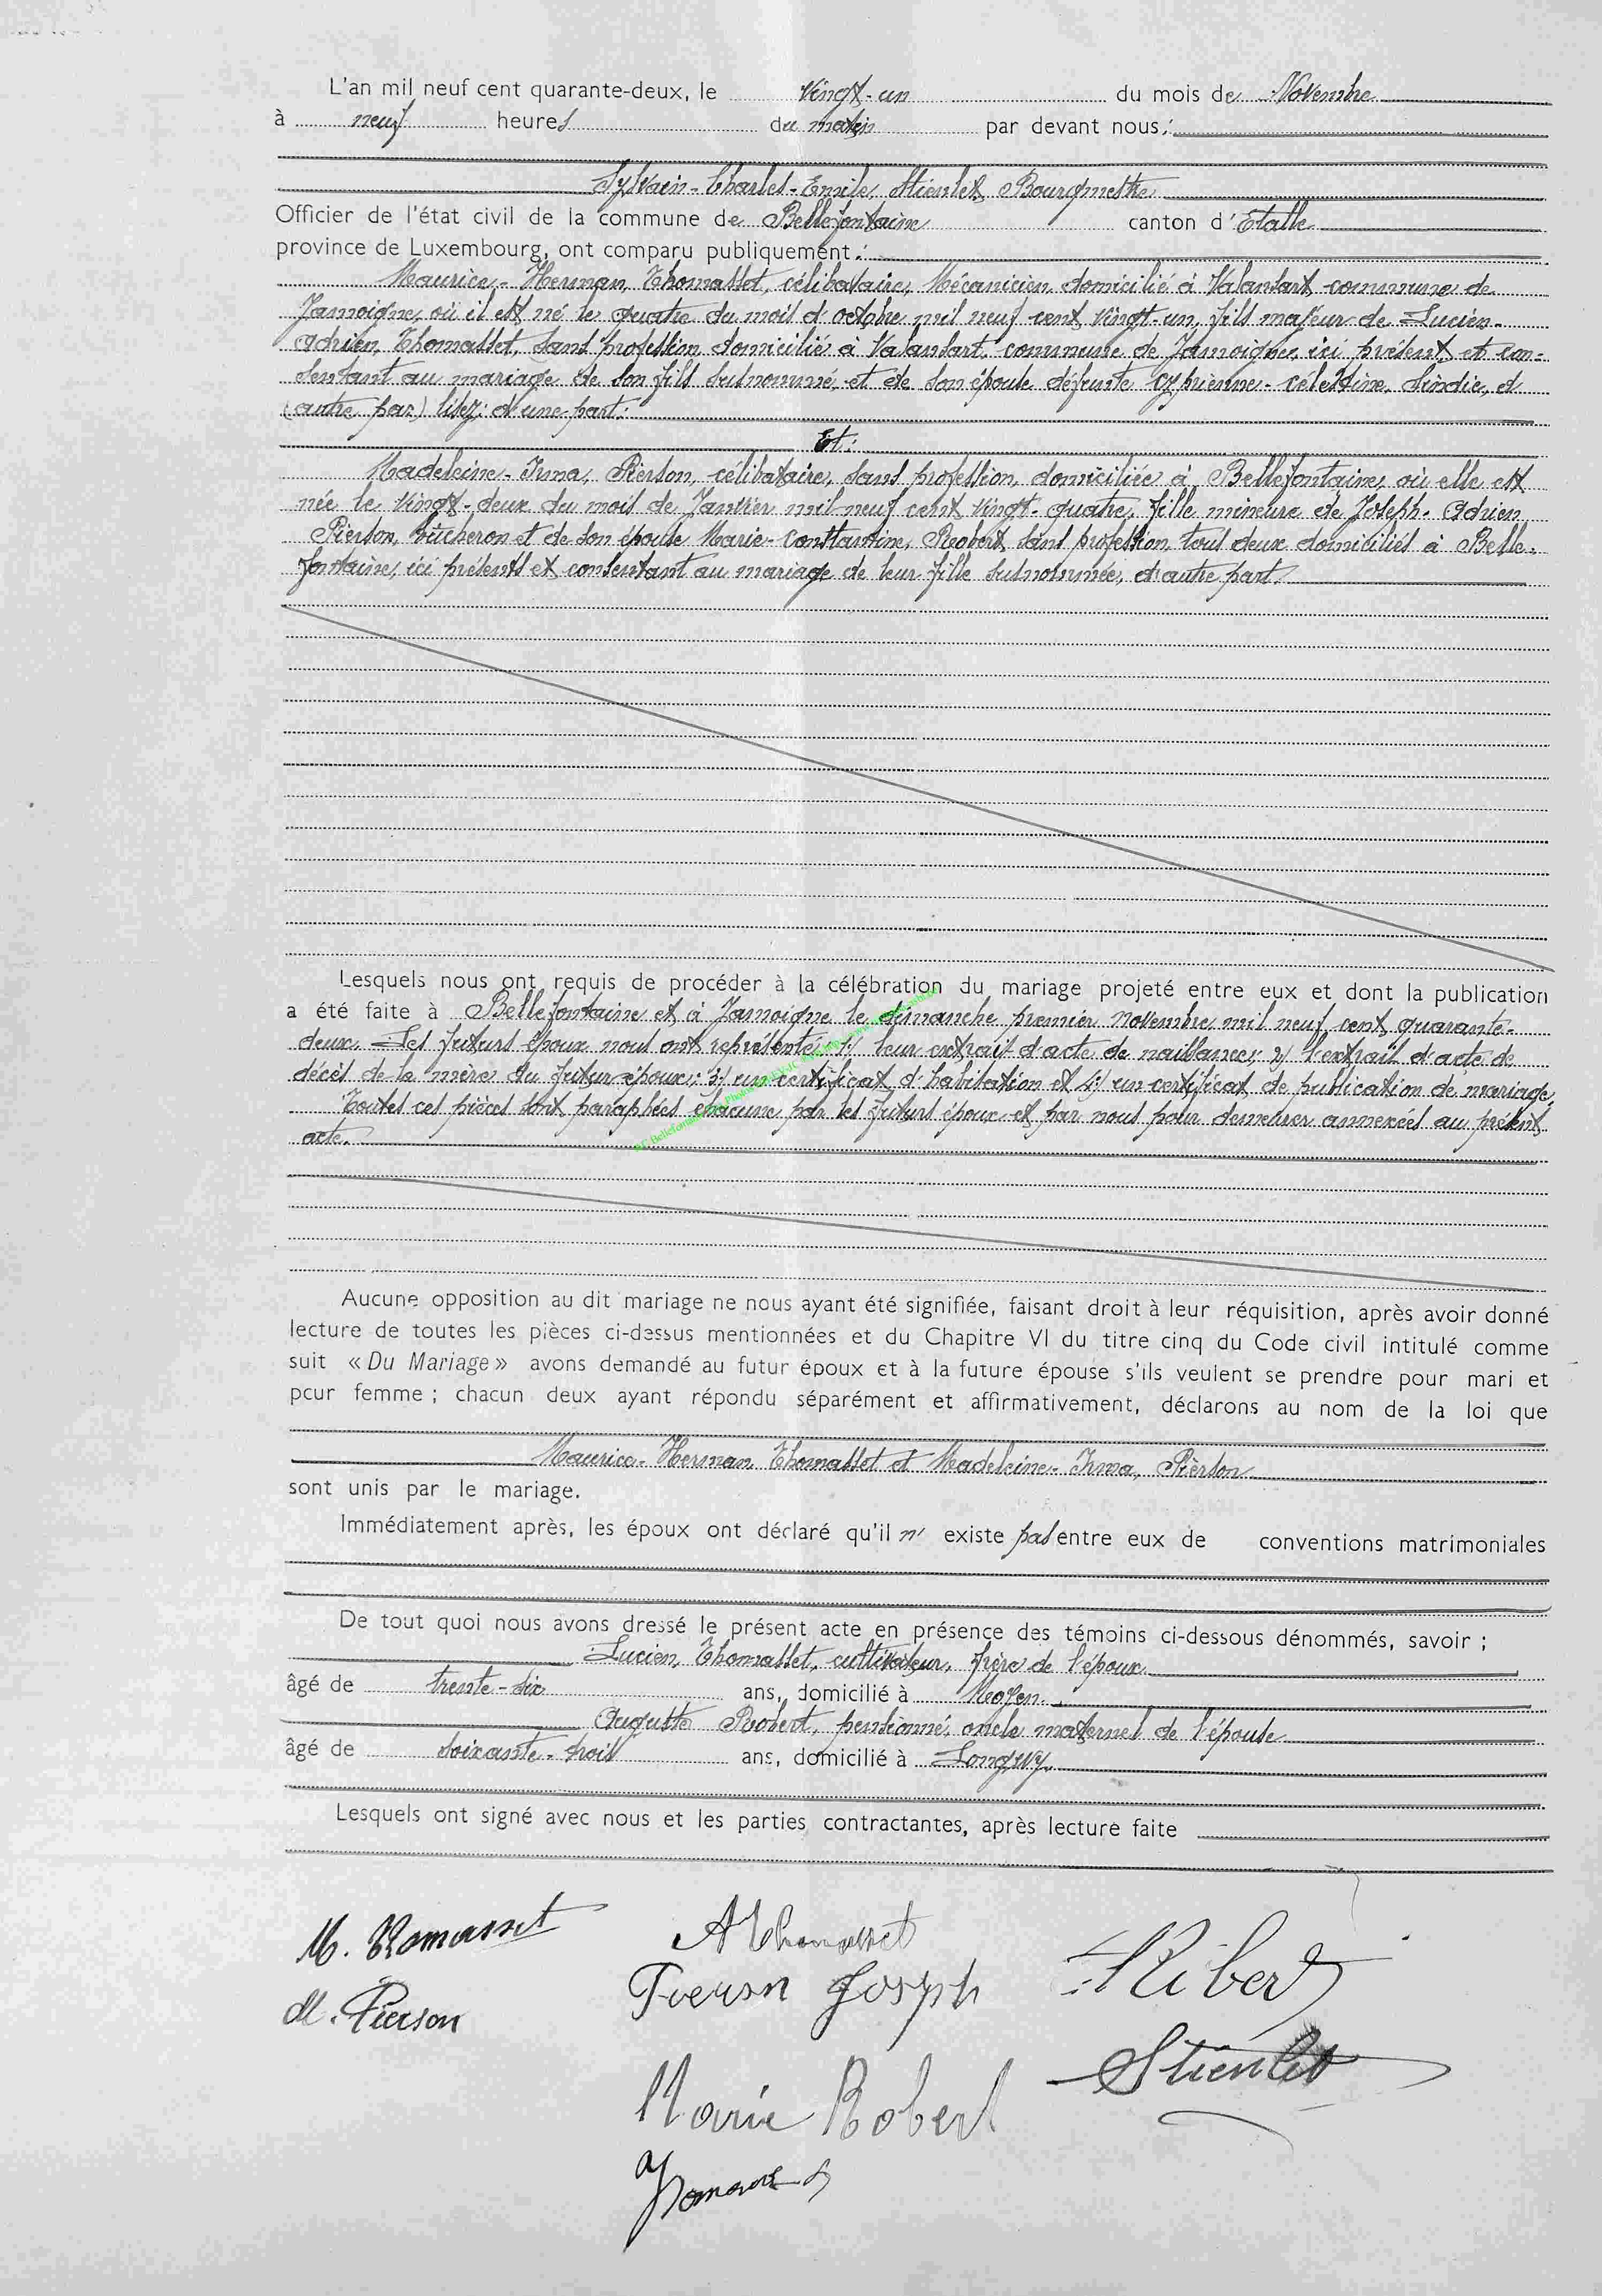 L'an mil neuf cent quarante-deux, le vingt-un du mois de Novembre
à neuf heures du matin par devant nous:
Sylvain-Charles-Emile, Stienlet, Bourgmestre
Officier de l'état civil de la commune de Bellefontaine canton d'Etalle
province de Luxembourg, ont comparu publiquement :
Maurice-Herman, Thomasset, célibataire, Mécanicien, domicilié à Valansart, commune de
Jamoigne, où il est né le quatre du mois d'octobre mil neuf cent vingt-un, fils majeur de Lucien-
Adrien, Thomasset, sans profession, domicilié à Valansart, commune de Jamoigne, ici présent et con-
sentant au mariage de son fils susnommé, et de son épouse défunte Cyprienne-Célestine, et
(autre part) lisez: d'une part.
Et:
Madeleine-Irma, Pierson, célibataire, sans profession, domiciliée à Bellefontaine, où elle est
née le vingt-deux du mois de Janvier mil neuf cent vingt-quatre, fille mineure de Joseph-Adrien
Pierson, bûcheron et de son épouse Marie-Constantine, Robert, sans profession, tous deux domiciliés à Belle-
fontaine, ici présents et consentant au mariage de leur fille susnommée, d'autre part.
Lesquels nous ont requis de procéder à la célébration du mariage projeté entre eux et dont la publication
a été faite à Bellefontaine et à Jamoigne le dimanche premier novembre mil neuf cent quarante-
deux. Les futurs époux nous ont représenté: 1) leur extrait d'acte de naissance; 2) l'extrait d'acte de
décès de la mère du futur époux; 3) un certificat d'habitation et 4) un certificat de publication de mariage.
Toutes ces pièces sont paraphées chacune par les futurs époux et par nous pour demeurer annexées au présent
acte.
Aucune opposition au dit mariage ne nous ayant été signifiée, faisant droit à leur réquisition, après avoir donné
lecture de toutes les pièces ci-dessus mentionnées et du Chapitre VI du titre cinq du Code civil intitulé comme
suit «Du Mariage» avons demandé au futur époux et à la future épouse s'ils veulent se prendre pour mari et
pour femme ; chacun deux ayant répondu séparément et affirmativement, déclarons au nom de la loi que
Maurice-Herman, Thomasset et Madeleine-Irma, Pierson
sont unis par le mariage.
Immédiatement après, les époux ont déclaré qu'il n' existe pas entre eux de conventions matrimoniales
De tout quoi nous avons dressé le présent acte en présence des témoins ci-dessous dénommés, savoir ;
Lucien, Thomasset, cultivateur, frère de l'époux
âgé de trente-six ans, domicilié à Moyen.
Auguste Robert, pensionné, oncle maternel de l'épouse
âgé de soixante-trois ans, domicilié à Longwy.
Lesquels ont signé avec nous et les parties contractantes, après lecture faite
M. Thomasset
A Thomasset
M. Pierson
Pierson Joseph
Stienlet
Marie Robert